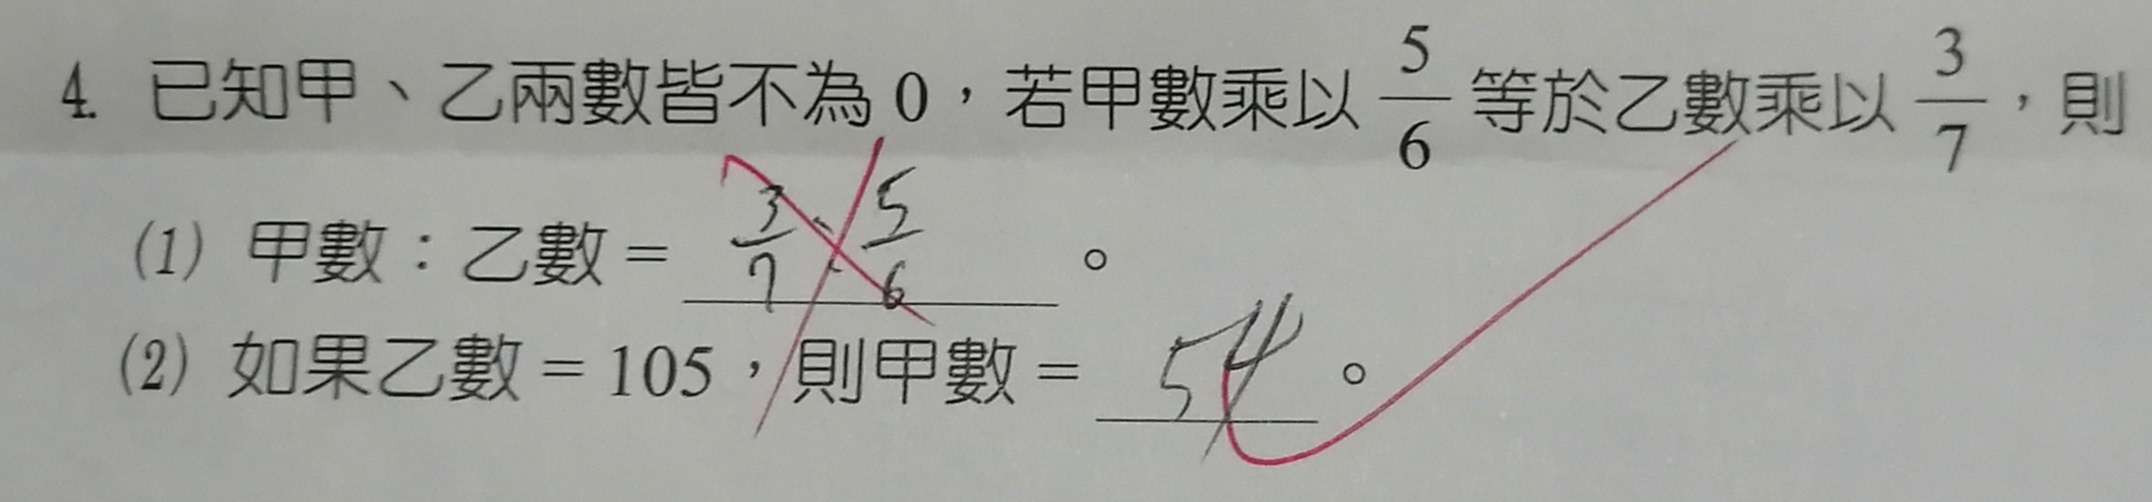 4. 已知甲、乙兩數皆不為 0，若甲數乘以 5/6 等於乙數乘以 3/7，則
(1) 甲數：乙數 = 3/7 : 5/6 。
(2) 如果乙數 = 105，則甲數 = 54 。